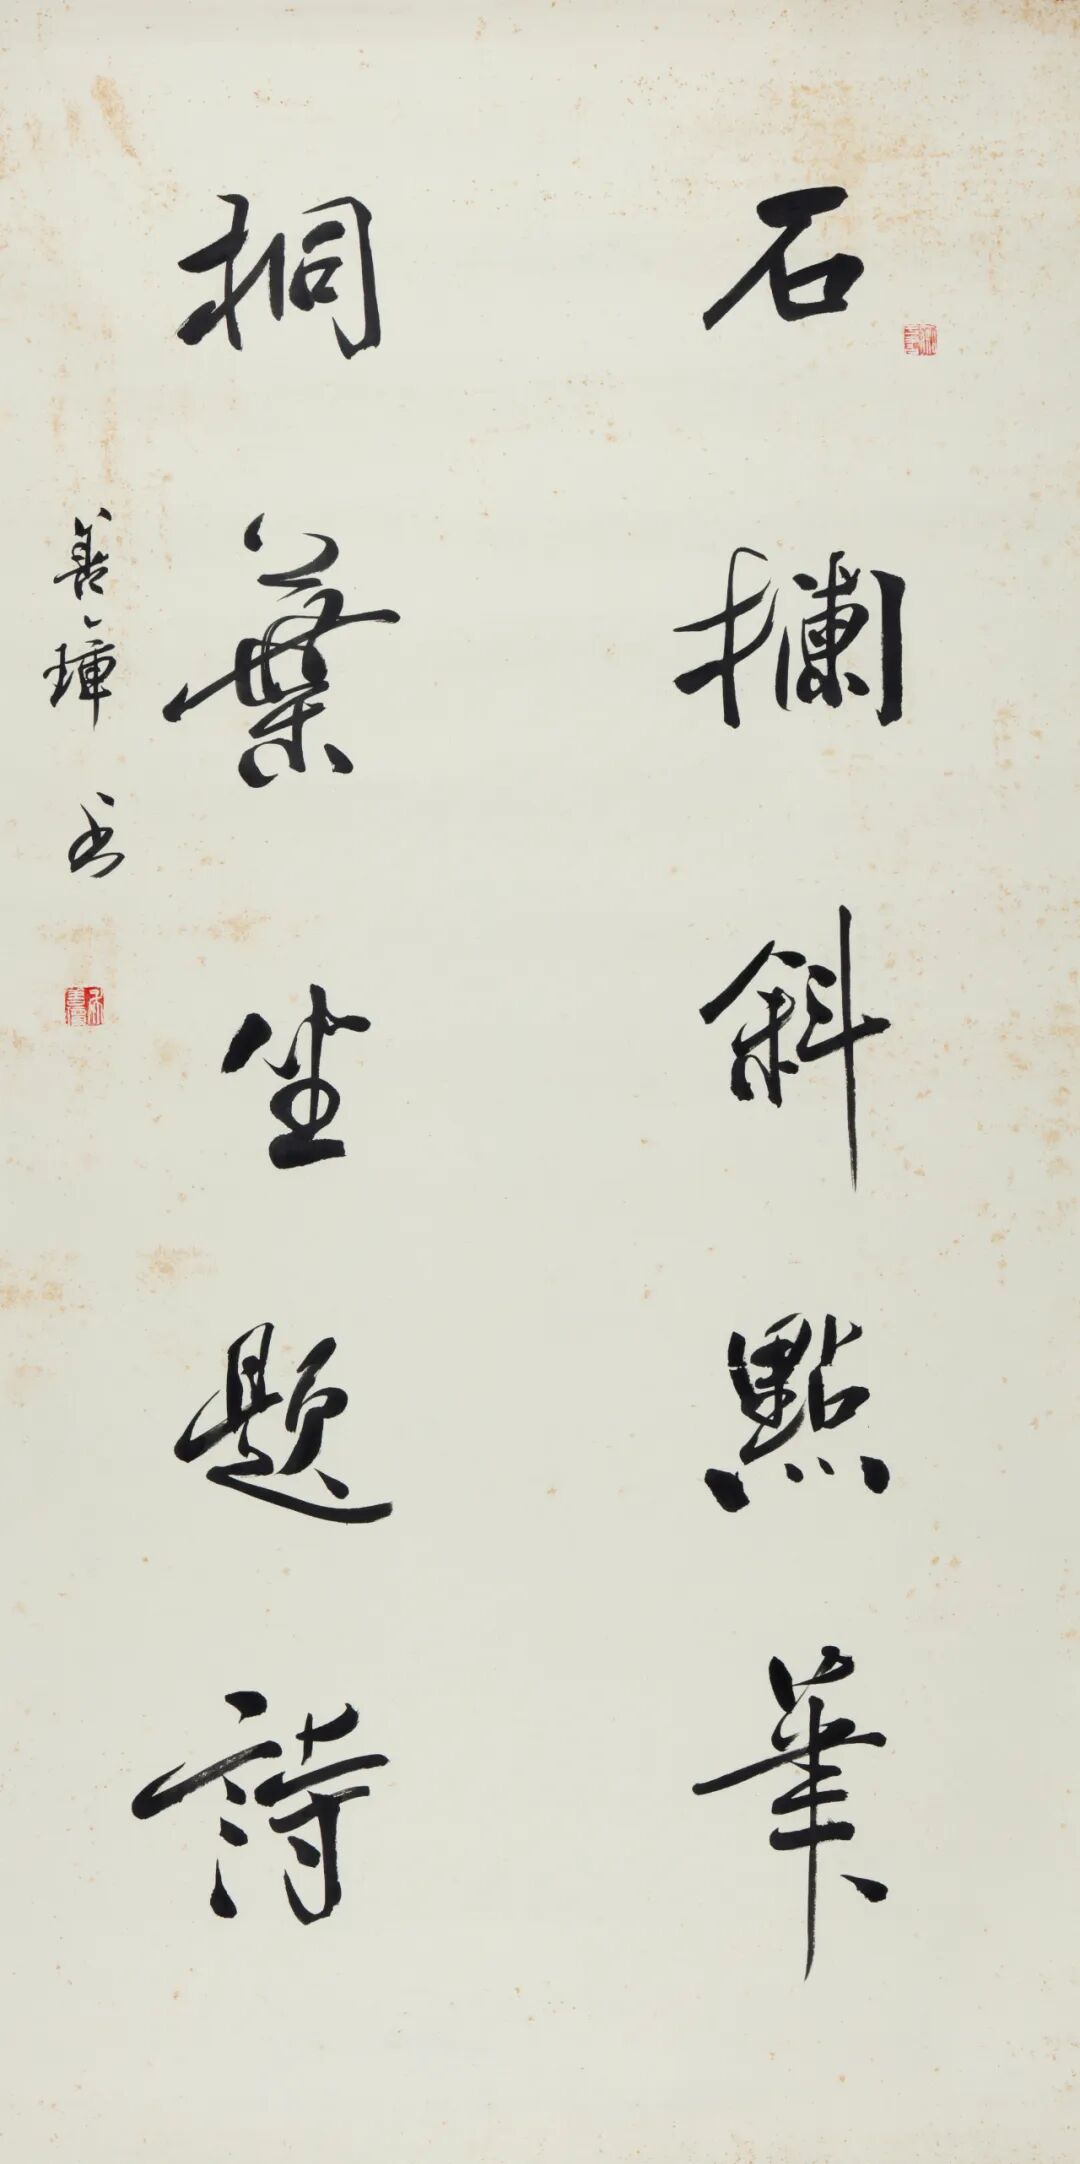 石欄斜點筆
桐葉坐題詩
善璋書